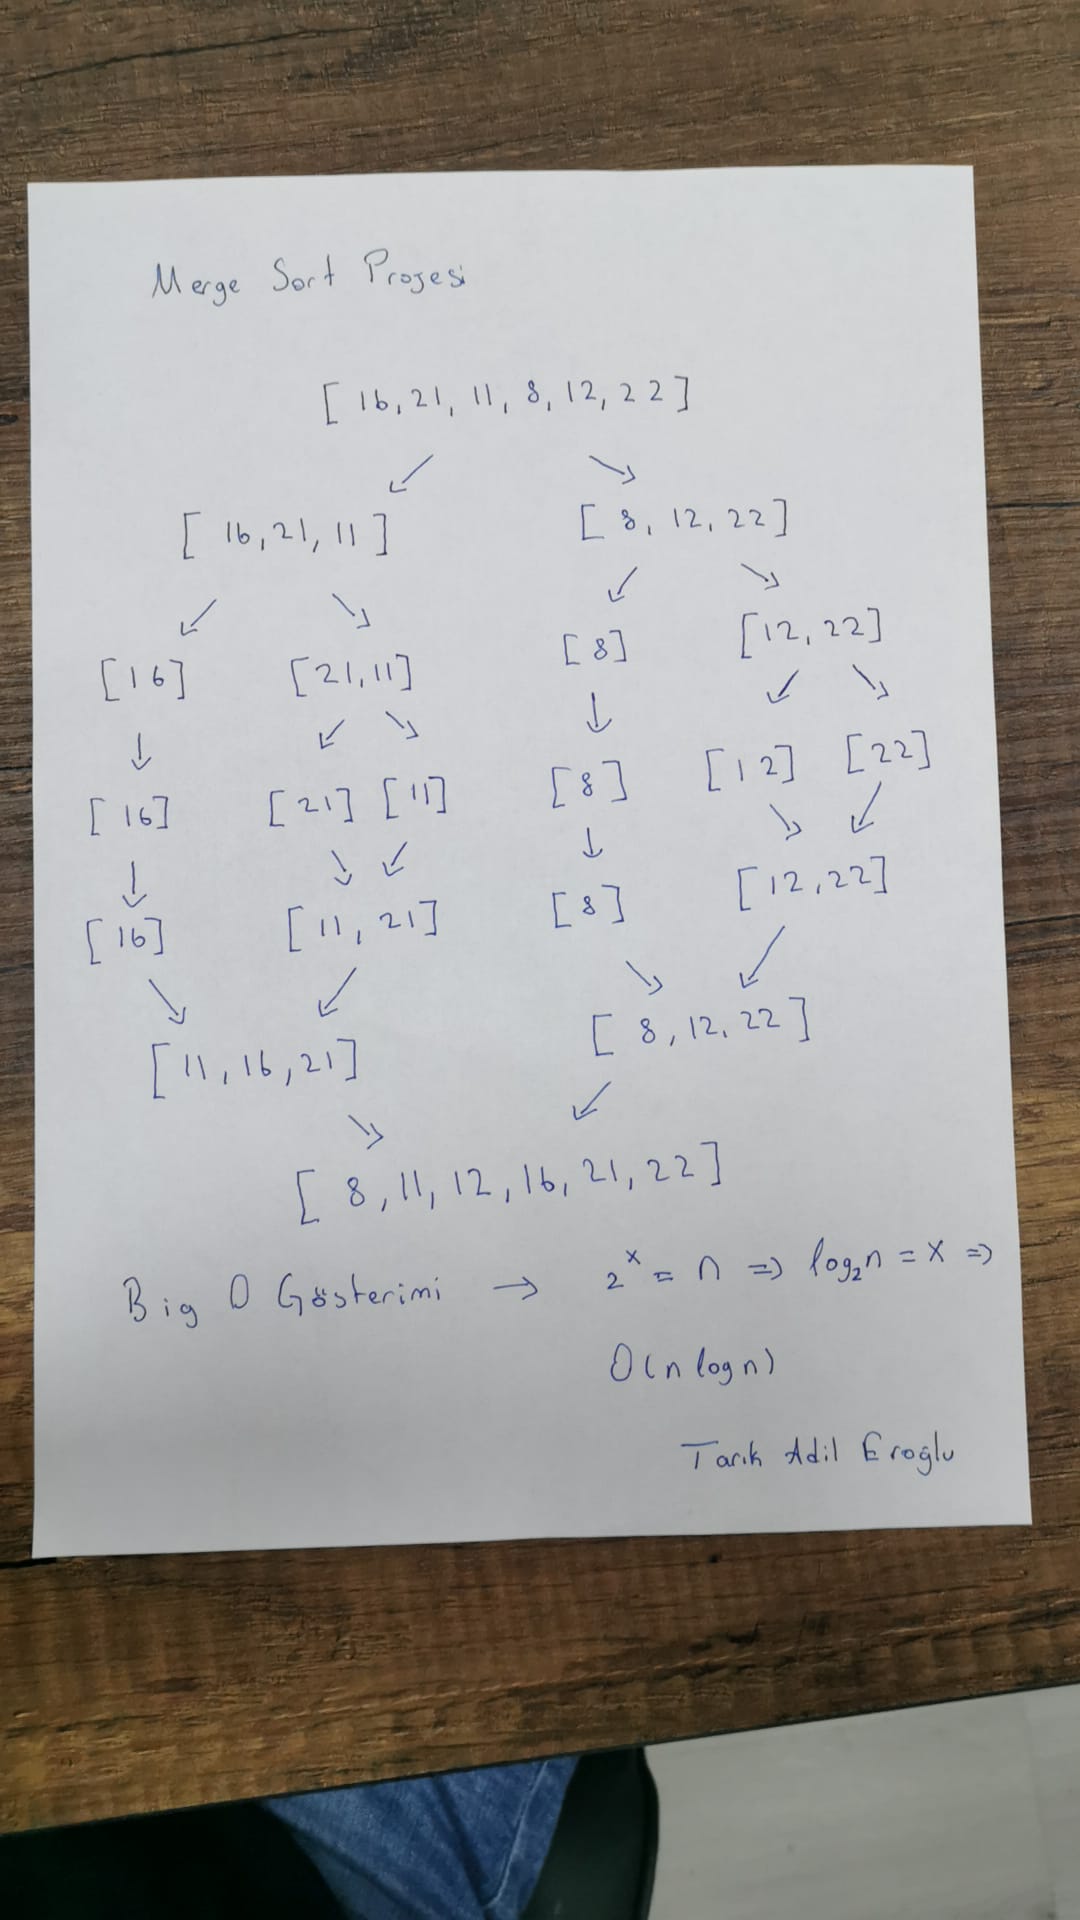 Merge Sort Projesi
[ 16, 21, 11, 8, 12, 22 ]
[ 16, 21, 11 ] [ 8, 12, 22 ]
[16] [21, 11] [8] [12, 22]
[16] [21] [11] [8] [12] [22]
[16] [11, 21] [8] [12, 22]
[11, 16, 21] [ 8, 12, 22 ]
[ 8, 11, 12, 16, 21, 22 ]
Big O Gösterimi → 2ˣ = n => log₂n = x =>
O(n log n)
Tarık Adil Eroğlu